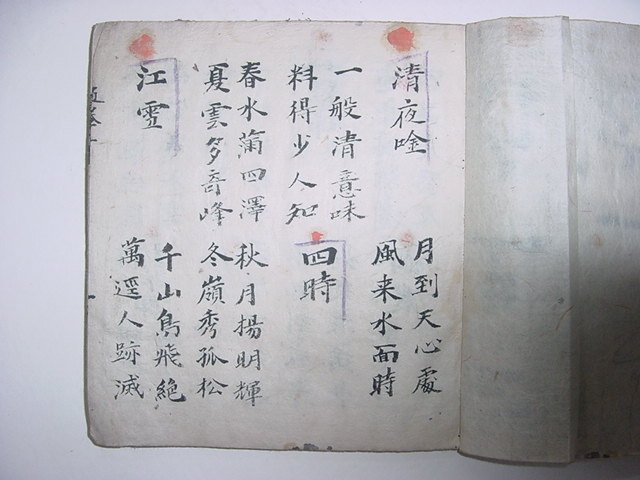 清夜唫
月到天心處
風来水面時
一般清意味
料得少人知
四時
春水滿四澤
夏雲多奇峰
秋月揚明輝
冬嶺秀孤松
江雪
千山鳥飛絶
萬逕人跡滅